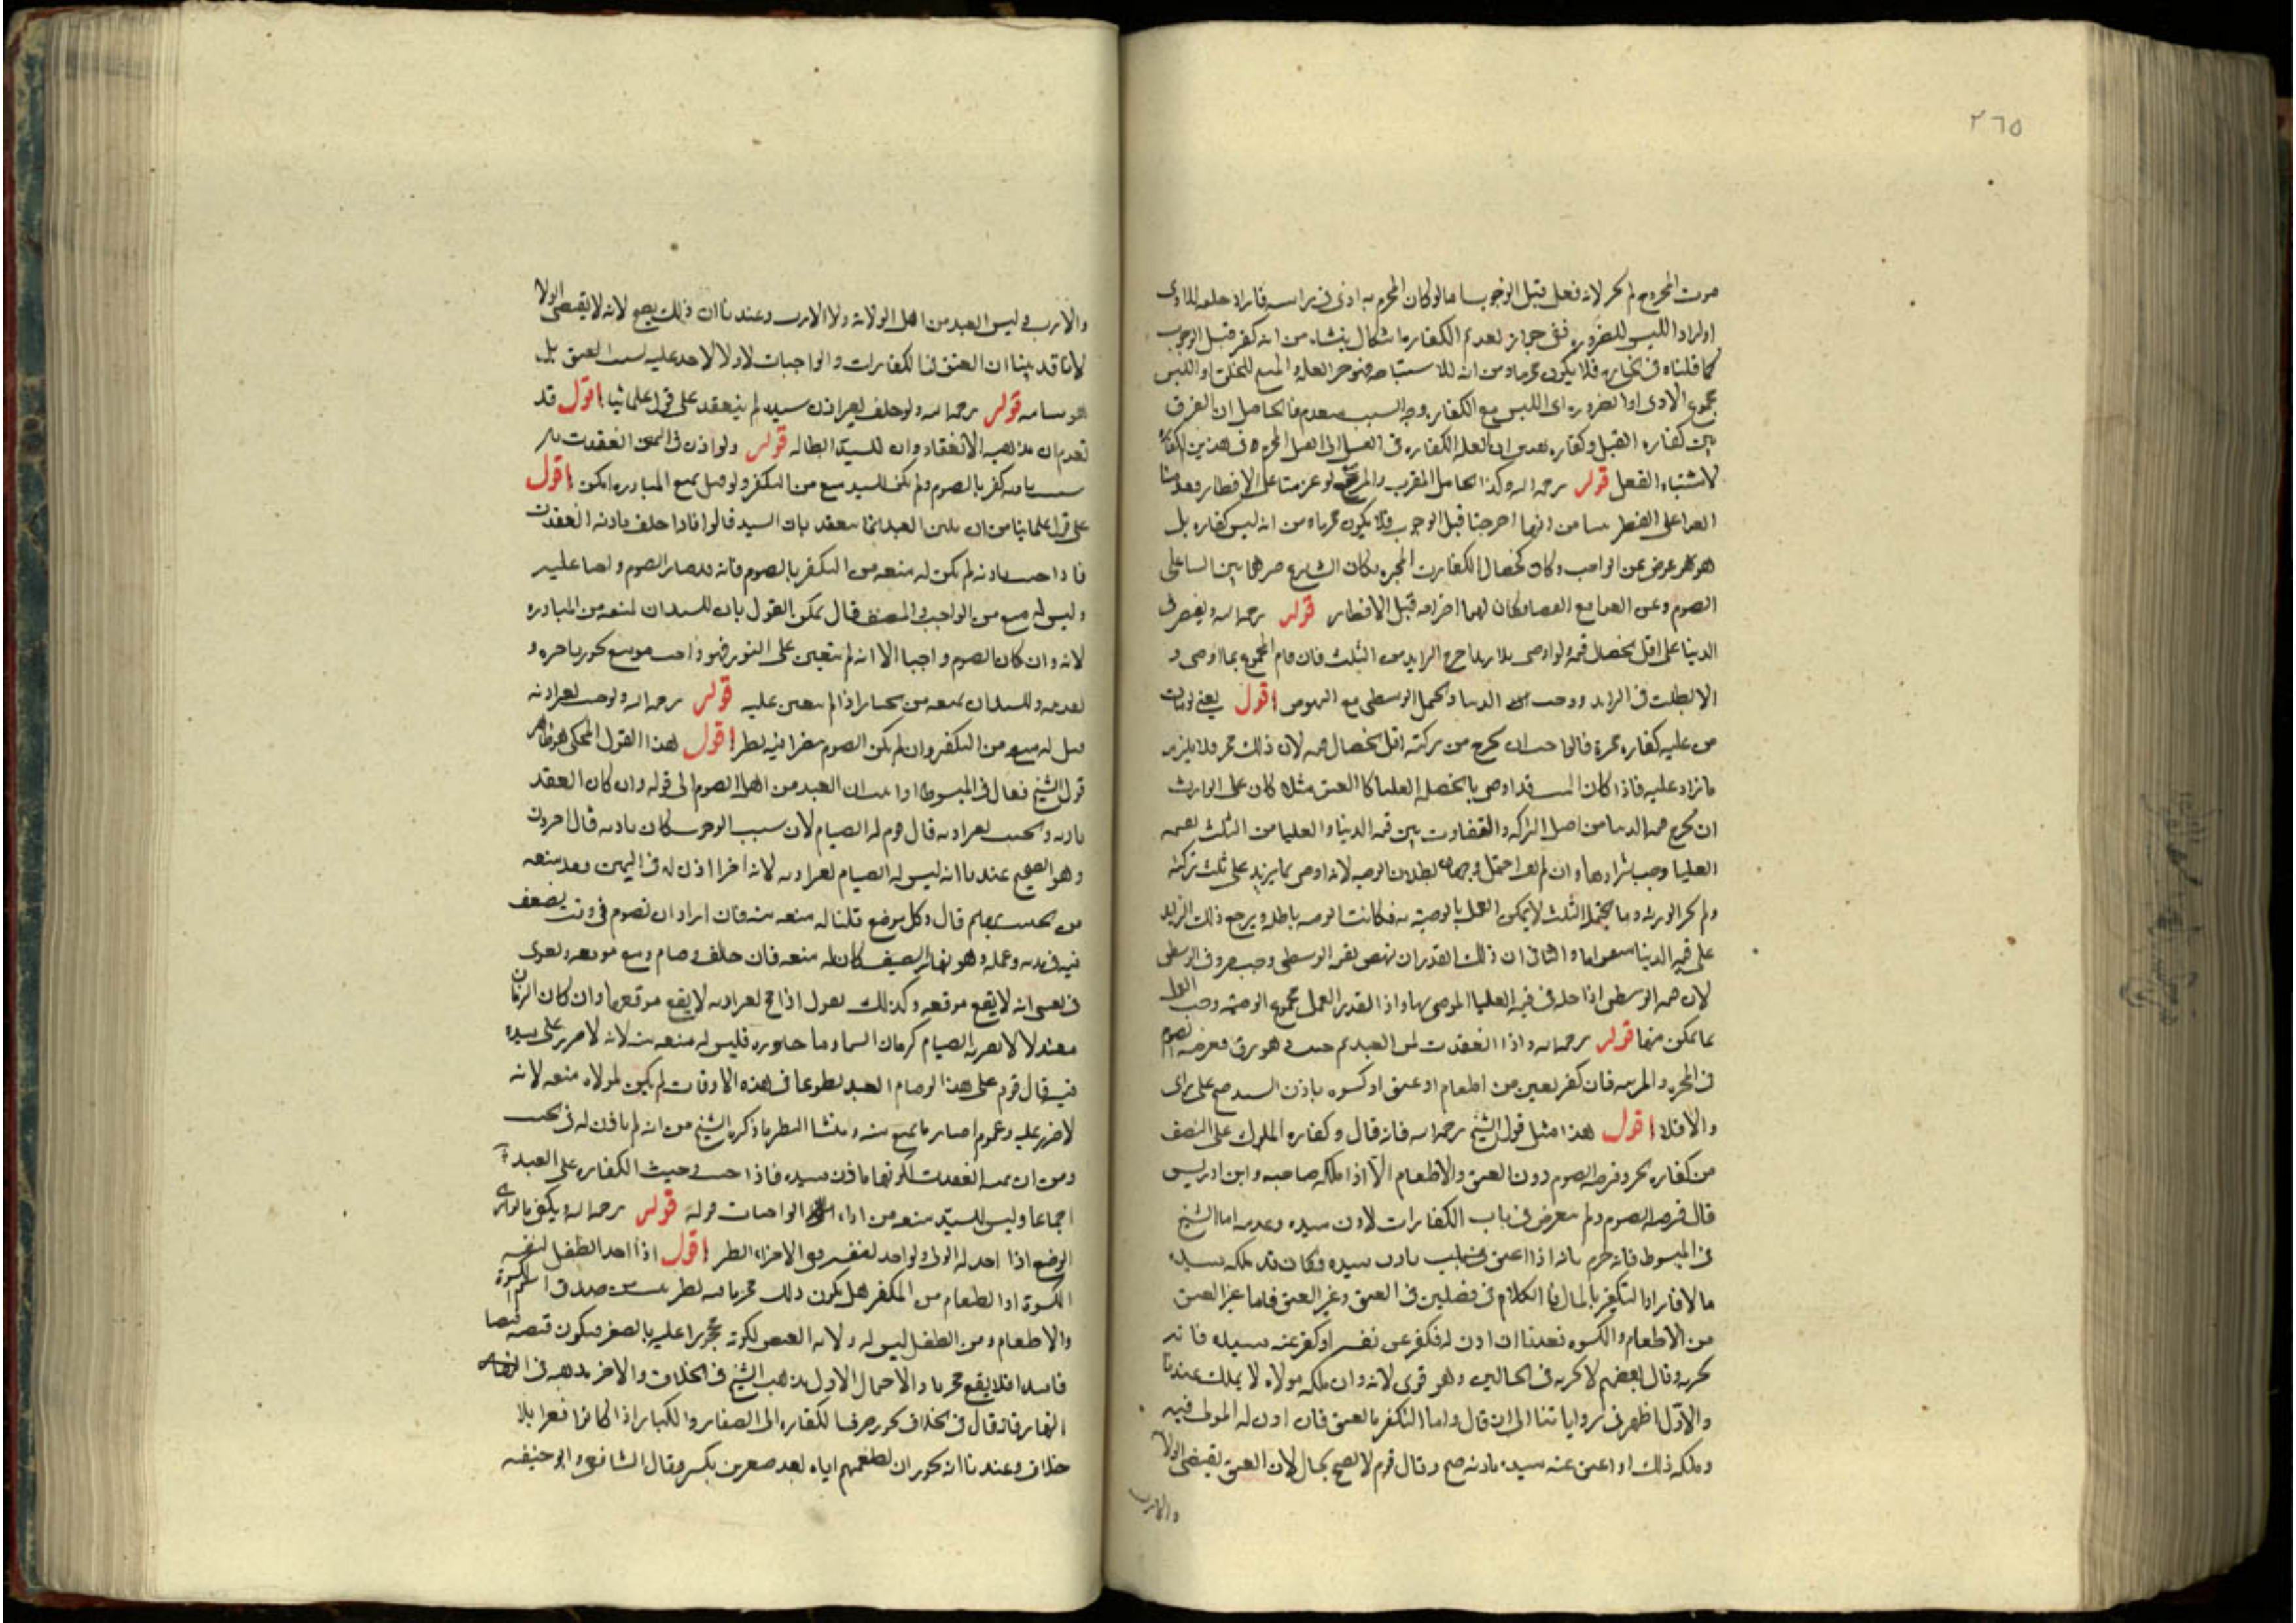 ٢٦٥
موت المجروح لم يجز لانه فعل قبل الوجوب اما لو كان المحرم به اذى في راسه فاراد حلقه للاذى
او اراد اللبس للضرورة ففي جواز تقديم الكفارة اشكال ينشاء من انه كفر قبل الوجوب
كما قلناه في فلا يكون مجزيا ومن ان الاستباحة العلة المبيح للحلق او اللبس
مجموع الاذى او الضرورة الى اللبس مع الكفارة وجزء السبب متقدم فالحاصل ان الفرق
بين كفارة القتل وكفارة العلة الكفارة في القتل القتل المحرم في هذين الكفارة
لاستباه الفعل قوله رحمه الله وكذا الحامل المقرب والمرضع لو عزمتا على الافطار فقدمتا
الفداء على الفطر من انهما اخرجتا قبل الوجوب فلا يكون مجزيا ومن انه ليس كفارة بل
هو عوض عن الواجب وكان كخصال الكفارة المخيرة فكان الشارع خيرهما بين
الصوم وبين الفداء مع القضا فكان لهما اخراجه قبل الافطار قوله رحمه الله ويقتصر في
الدنيا على اقل الخصال قيمة ولو اوصى بالازيد اخرج الزايد من الثلث فان قام المجموع بما اوصى و
الا بطلت في الزايد ووجب الدنيا ويحتمل الوسطى مع النهوض اقول يعني لو مات
من عليه كفارة مخيرة فالواجب ان يخرج من تركته اقل الخصال قيمة لان ذلك مجز فلا يلزمه
ما زاد عليه فاذا كان الميت قد اوصى بالخصلة العليا كالعتق مثلا كان على الوارث
ان يخرج قيمة الدنيا من اصل التركة والتفاوت بين قيمة الدنيا والعليا من الثلث بقيمة
العليا وجب شراؤها وان لم يف احتمل وجهان بطلان الوصية لانه اوصى بما يزيد على ثلث تركته
ولم يجز الورثة وما يحتمله الثلث لا يمكن العمل بالوصية به فكانت الوصية باطلة ويرجع ذلك الزايد
على قيمة الدنيا والثاني ان ذلك القدر ان نهض بقيمة الوسطى وجب صرفه في الوسطى
لان قيمة الوسطى داخلة في قيمة العليا الموصى بها واذا تعذر العمل بمجموع الوصية وجب العمل
بما يمكن منها قوله رحمه الله واذا انعقدت يمين العبد ثم حنث وهو رق ففرضه الصوم
في المخيرة والمرتبة فان كفر بغيره من اطعام او عتق او كسوة باذن السيد صح على راى
والا فلا اقول هذا مثل قول الشيخ رحمه الله فانه قال وكفارة المملوك على النصف
من كفارة الحر وفرضه الصوم دون العتق والاطعام الا اذا ملكه صاحبه وابن ادريس
قال فرضه الصوم ولم يتعرض في باب الكفارات لاذن سيده وعدمه اما الشيخ
في المبسوط فانه جزم بانه اذا اعتق باذن سيده وكان قد ملكه سيده
مالا فاراد التكفير بالمال فالكلام في فصلين في العتق وغير العتق فاما غير العتق
من الاطعام والكسوة فعندنا ان اذن له فكفر عن نفسه او كفر عنه سيده فانه
يجزيه وقال بعضهم لا يجزيه في الحالين وهو قوي لانه وان ملكه مولاه لا يملك عندنا
والاول اظهر في رواياتنا الى ان قال واما التكفير بالعتق فان اذن له المولى فيه
وملكه ذلك او اعتق عنه سيده باذنه صح وقال قوم لا يصح بحال لان العتق يقتضي الولا
والارث
والارث وليس العبد من اهل الولاية ولا الارث وعندنا ان ذلك يصح لانه لا يقتضي الولا
لانا قد بينا ان العتق في الكفارات والواجبات لا ولاء لاحد عليه بسبب العتق بل
هو سايبة قوله رحمه الله ولو حلف بغير اذن سيده لم ينعقد على قول علمائنا اقول قد
تقدم ان مذهبه الانعقاد وان للسيد ابطاله قوله ولو اذن في اليمين انعقدت فان
حنث باذنه كفر بالصوم ولم يكن للسيد منعه من التكفير ولو قيل بمنع المبادرة امكن اقول
على قول علمائنا من ان يمين العبد انما ينعقد باذن السيد قالوا فاذا حلف باذنه انعقدت
فاذا حنث باذنه لم يكن له منعه من التكفير بالصوم فانه قد صار الصوم واجبا عليه
وليس له منعه من الواجب والمصنف قال يمكن القول بان للسيد ان يمنعه من المبادرة
لانه وان كان الصوم واجبا الا انه لم يتعين على الفور فهو واجب موسع يجوز تاخره و
تقديمه وللسيد ان يمنعه من اذا لم يتعين عليه قوله رحمه الله ولو حنث بغير اذنه
قيل له منعه من التكفير وان لم يكن الصوم مضرا فيه نظر اقول هذا القول المحكي هو ظاهر
قول الشيخ فقال في المبسوط اذا ان العبد من اهل الصوم الى قوله وان كان العقد
باذنه والحنث بغير اذنه قال قوم له الصيام لان سبب الوجوب كان باذنه وقال اخرون
وهو الصحيح عندنا انه ليس له الصيام بغير اذنه لانه اذا اذن له في اليمين فقد منعه
من الحنث بها ثم قال وكل موضع قلنا له منعه منه فان اراد ان يصوم في وقت يضعف
فيه في بدنه وعمله وهو نهار الصيف كان له منعه فان خالف وصام وقع موقعه ويقوى
في نفسي انه لا يقع موقعه وكذلك نقول اذا حج بغير اذنه لا يقع موقعها وان كان الزمان
معتدلا لا يضر به الصيام كزمان الشتاء وما جاوره فليس له منعه منه لانه لا ضرر على سيده
فيه قال قوم على هذا لو صام العبد تطوعا في هذه الاوقات لم يكن لمولاه منعه لانه
لا ضرر عليه وعموم اخبارنا يمنع منه ومنشا النظر ما ذكره الشيخ من انه لم ياذن له في الحنث
ومن ان يمينه انعقدت لكونها باذن سيده فاذا حنث وجبت الكفارة على العبد
اجماعا وليس للسيد منعه من اداء الواجبات قوله قوله رحمه الله ويكفي
الرضيع اذا اخذ له الولي ولو اخذ لنفسه ففي الاجزاء نظر اقول اذا اخذ الطفل لنفسه
الكسوة او الطعام من المكفر هل يكون ذلك مجزيا فيه نظر من صدق اسم الكسوة
والاطعام ومن الطفل ليس له ولاية القبض لكونه محجورا عليه بالصغر فيكون قبضه قبضا
فاسدا فلا يقع مجزيا والاحتمال الاول مذهب الشيخ في الخلاف والاخر مذهبه في
فانه قال في الخلاف يجوز صرف الكفارة الى الصغار والكبار اذا كانوا فقرا بلا
خلاف وعندنا انه يجوز ان يطعمهم اياه يعد صغيرين بكبير وقال الشافعي وابو حنيفه